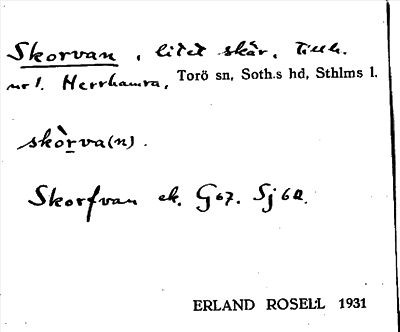 Skorvan, litet skär, tillh.
nr 1. Herrhamra, Torö sn, Soth.s hd, Sthlms l.
skòrva(n).
Skorfvan ek. G67. Sj 62.
ERLAND ROSELL 1931